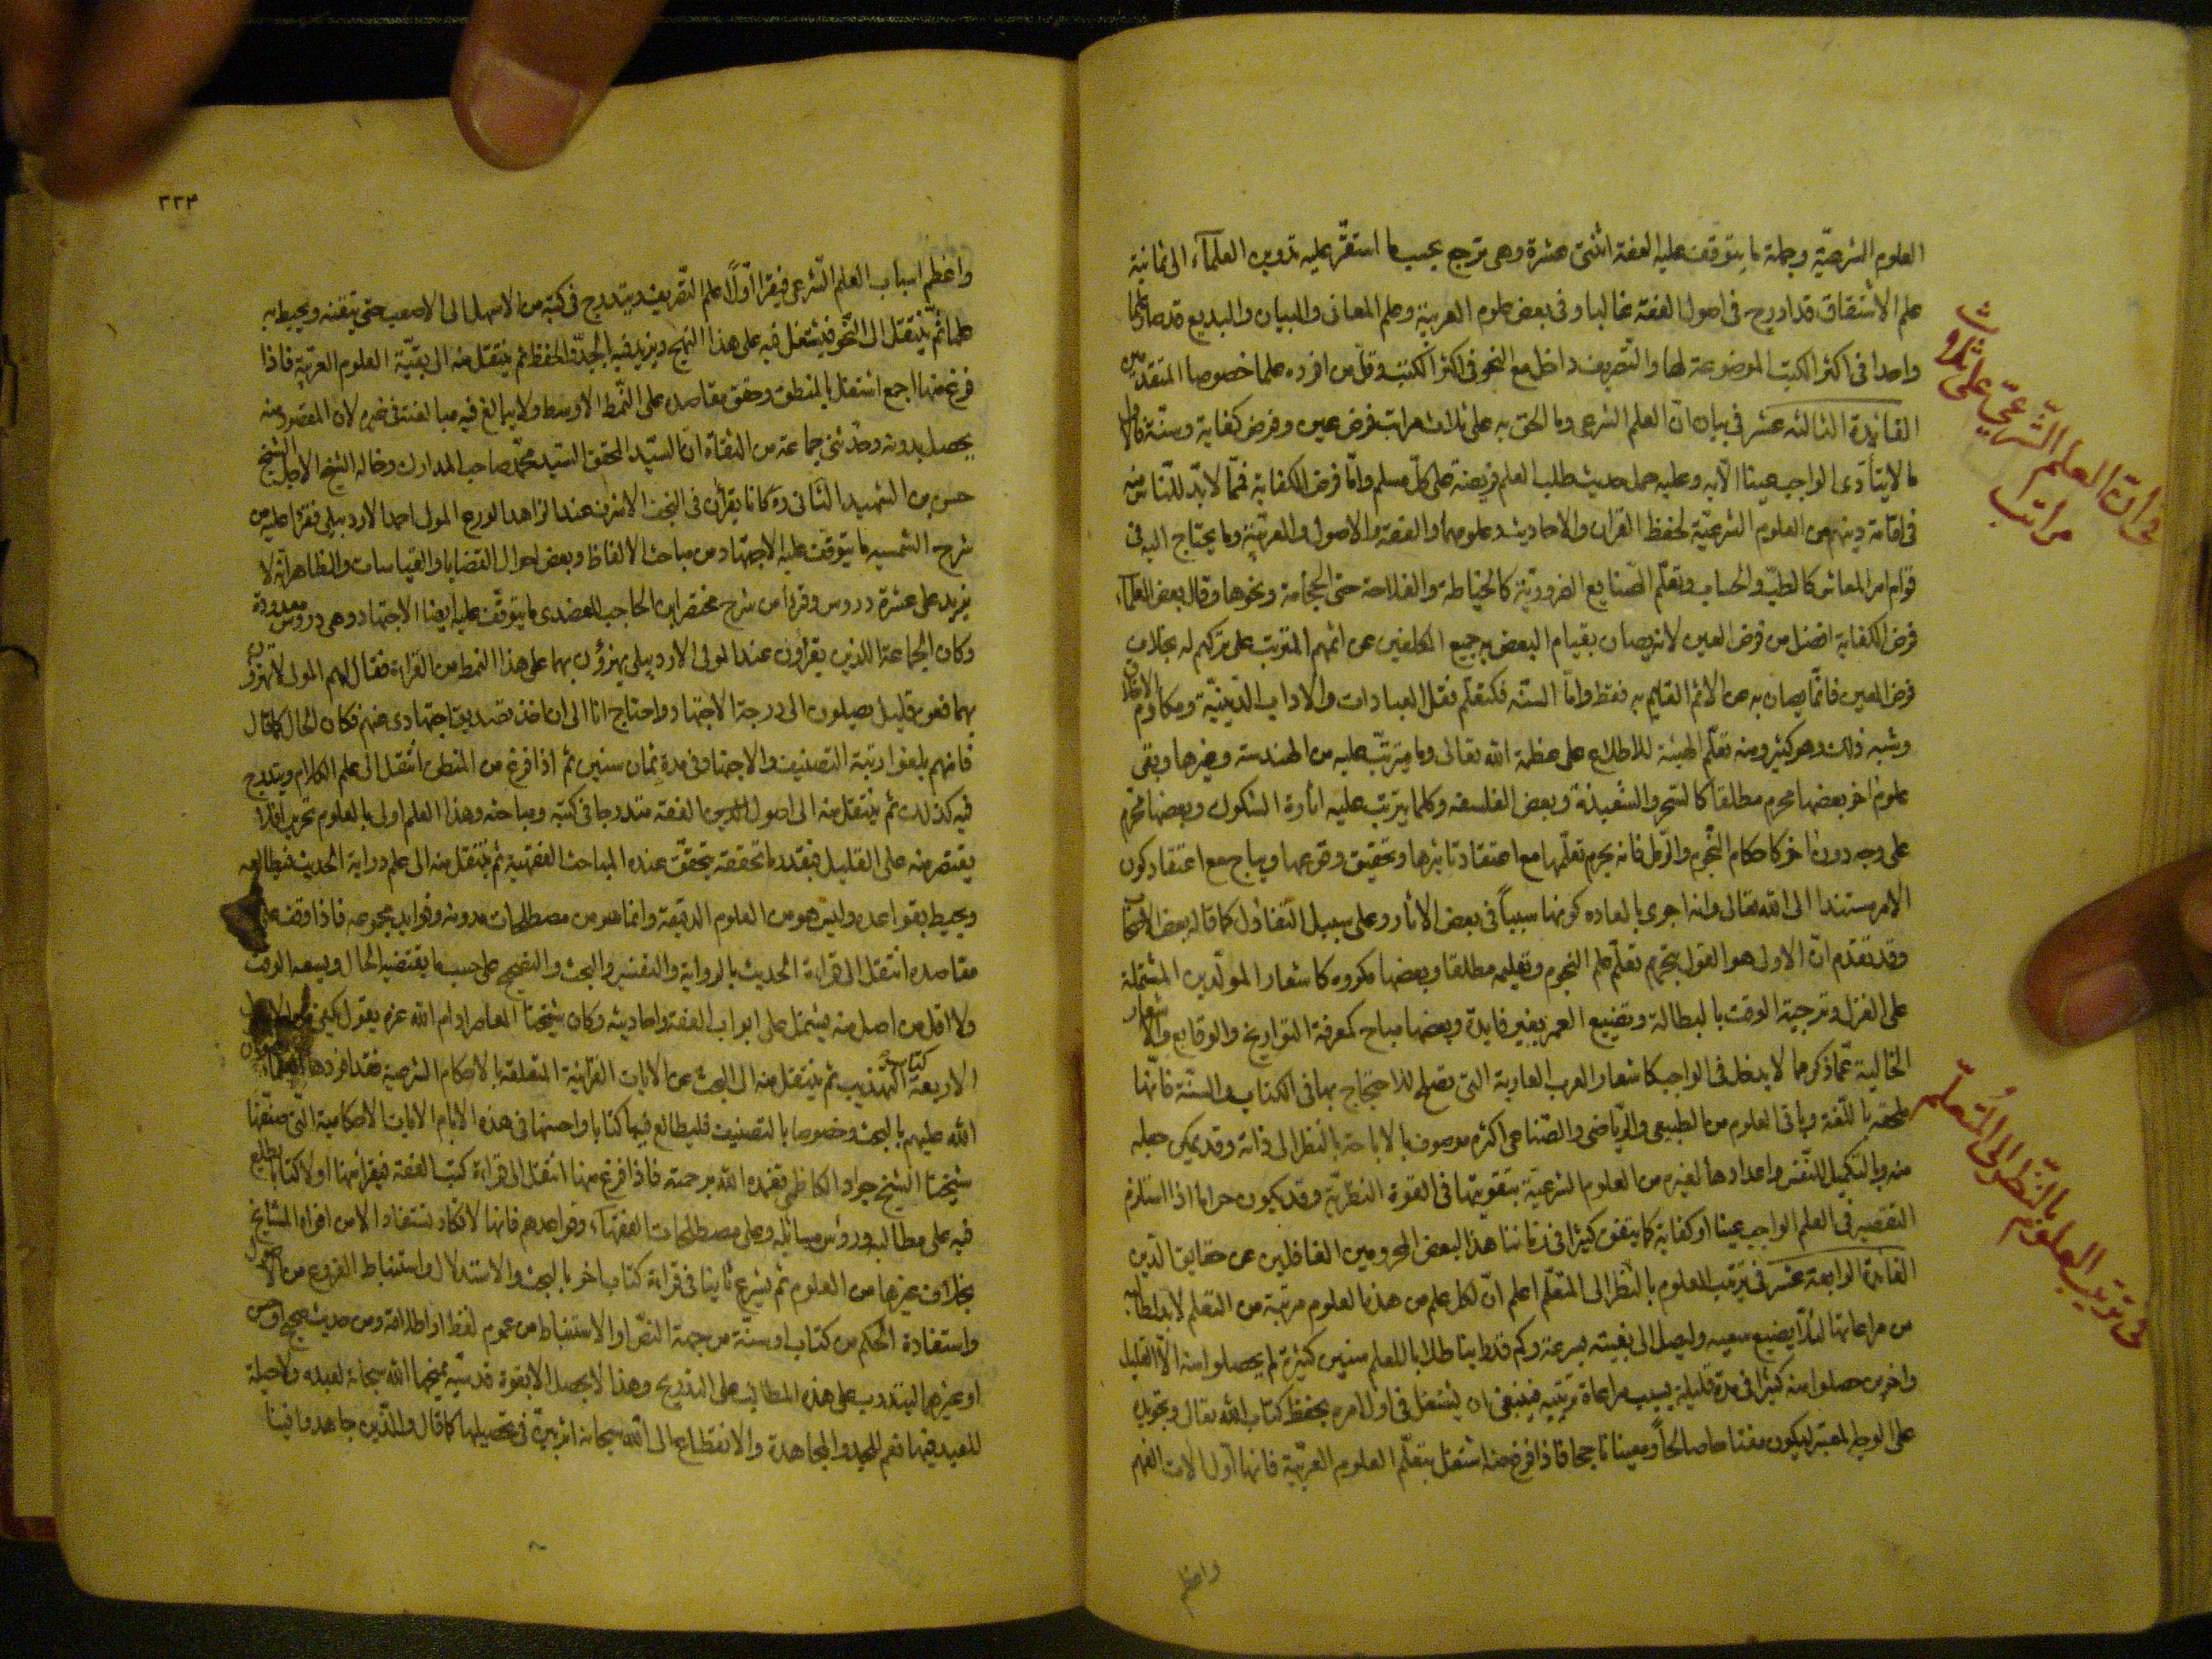 العلوم الشرعيّة وجملة ما يتوقف عليه الفقه اثنتى عشرة وهى ترجع بحسب ما استقرّ عليه تدوين العلمآء الى ثمانية
علم الاشتقاق قد ادرج فى اصول الفقه غالبا وفى بعض علوم العربية وعلم المعانى والبيان والبديع قد صار علما
واحدا فى اكثر الكتب الموضوعة لها والتصريف داخل مع النحو فى اكثر الكتب وقلّ من افرده علما خصوصا المتقدمين
الفائدة الثالثه عشر فى بيان انّ العلم الشرعى وما الحق به على ثلاث مراتب فرض عين وفرض كفاية وسنّة فالاول
ما لا يتأدّى الواجب عينا الّا به وعليه حمل حديث طلب العلم فريضة على كلّ مسلم وامّا فرض الكفاية فمّا لا بدّ للنّاس منه
فى اقامة دينهم من العلوم الشرعيّة كحفظ القرآن والاحاديث وعلومهما والفقه والاصول والعربيّة وما يحتاج اليه فى
قوام امر المعاش كالطبّ والحساب وتعلّم الصّنايع الضروريّة كالخياطة والفلاحة حتى الحجامة ونحوها وقال بعض العلمآء
فرض الكفاية افضل من فرض العين لانه يصان بقيام البعض به جميع المكلفين عن اثمهم المترتب على تركهم له بخلاف
فرض العين فانّما يصان به عن الاثم القايم به فقط وامّا السنّه فكتعلّم نفل العبادات والاداب الدّينيّة ومكارم الاخلاق
وشبه ذلك وهو كثير ومنه تعلّم الهيئة للاطلاع على عظمة الله تعالى وما يترتّب عليه من الهندسة وغيرها وبقى
علوم اخر بعضها محرم مطلقا كالسّحر والشّعبذة وبعض الفلسفه وكلما يترتب عليه اثارة الشكوك وبعضها محرّم
على وجه دون اخر كاحكام النّجوم والرّمل فانه يحرم تعلّمها مع اعتقاد تاثيرها وتحقيق وقوعها ويباح مع اعتقاد كون
الامر مستندا الى الله تعالى وانه اجرى بالعاده كونها سببا فى بعض الاثار وعلى سبيل التفاؤل كما قاله بعض الاصحاب
وقد تقدّم انّ الاولى هو القول بتحريم تعلّم علم النجوم وتعليمه مطلقا وبعضها مكروه كاشعار المولّدين المشتملة
على الغزل وتزجية الوقت بالبطالة وتضييع العمر بغير فايدة وبعضها مباح كمعرفة التواريخ والوقايع والاشعار
الخالية عمّا ذكر مما لا يدخل فى الواجب كاشعار العرب العاربة التى تصلح للاحتجاج بها فى الكتاب والسنّة فانّها
ملحقة باللّغة وباقى العلوم من الطبيعى والرّياضى والصّناعى اكثره موصوف بالاباحة بالنظر الى ذاته وقد يمكن جعله
مندوبا لتكميل النّفس واعدادها لغيره من العلوم الشرعيّة بتقويتها فى القوة النظريّة وقد يكون حراما اذا استلزم
التقصير فى العلم الواجب عينا او كفاية كما يتفق كثيرا فى زماننا هذا لبعض المحرومين الغافلين عن حقايق الدّين
الفائدة الرابعة عشر فى ترتيب العلوم بالنّظر الى المتعلّم اعلم انّ لكل علم من هذه العلوم مرتبة من التعلم لا بد لطالبه
من مراعاتها لئلّا يضيع سعيه وليصل الى بغيته بسرعة وكم قد راينا طلابا للعلم سنين كثيرة لم يحصلوا منه الّا القليل
واخرين حصلوا منه كثيرا فى مدة قليلة بسبب مراعاة ترتيبه فينبغى ان يشتغل فى اول امره بحفظ كتاب الله تعالى وتجويده
على الوجه المعتبر ليكون مفتاحا صالحاً ومعينا ناجحا فاذا فرغ منه اشتغل بتعلّم العلوم العربيّة فانها اول الات الفهم
واعظم
فى أنّ العلم الشّرعىّ على ثلاث
مراتب
فى ترتيب العلوم بالنّظر الى المُتعلّم
٢٢٤
واعظم اسباب العلم الشّرعى فيقرا اوّلًا علم التّصريف ويتدرج فى كتبه من الاسهل الى الاصعب حتى يتقنه ويحيط به
علما ثمّ ينتقل الى النّحو فيشتغل فيه على هذا النهج ويزيد فيه الجدّ والحفظ ثم ينتقل منه الى بقيّة العلوم العربيّة فاذا
فرغ منها اجمع اشتغل بالمنطق وحقق مقاصده على النّمط الاوسط ولا يبالغ فيه مبالغته فى غيره لان المقصود منه
يحصل بدونه وحدّثنى جماعة من الثقاة ان السّيّد المحقق السّيد محمّد صاحب المدارك وخاله الشيخ الاجل الشيخ
حسن بن الشهيد الثّانى ره كانا يقرأان فى النجف الاشرف عند الزاهد الورع المولى احمد الاردبيلى فقرءا عليه من
شرح الشمسيه ما يتوقف عليه الاجتهاد من مباحث الالفاظ وبعض احوال القضايا والقياسات والظاهر انّه لا
يزيد على عشرة دروس وقرءا من شرح مختصر ابن الحاجب العضدى ما يتوقّف عليه ايضا الاجتهاد وهى دروس معدودة
وكان الجماعة اللذين يقرأون عند المولى الاردبيلى يهزؤن بهما على هذا النمط من القراءة فقال لهم المولى لا تهزؤن
بهما فعن قليل يصلون الى درجة الاجتهاد واحتاج انا الى ان اخذ تصديق اجتهادى منهم فكان الحال كما قال
فانهم بلغوا رتبة التصنيف والاجتهاد فى مدة ثمان سنين ثم اذا فرغ من المنطق انتقل الى علم الكلام ويتدرج
فيه كذلك ثم ينتقل منه الى اصول الفقه متدرجا فى كتبه ومباحثه وهذا العلم اولى بالعلوم
يقتصر منه على القليل فبقدر ما تحققه يتحقّق عنده المباحث الفقهية ثم ينتقل منه الى علم دراية الحديث فيطالعه
ويحيط بقواعده وليس هو من العلوم الدقيقة وانما هو من مصطلحات مدونه وفوايد مجموعه فاذا وقف على
مقاصده انتقل الى قراءة الحديث بالرواية والتفسير والبحث والتصحيح على حسب ما يقتضيه الحال ويسعه الوقت
ولا اقل من اصل منه يشتمل على ابواب الفقه واحاديثه وكان شيخنا المعاصر ادام الله عزه يقول يكفى
الاربعة كتاب التهذيب ثم ينتقل منه الى البحث عن الايات القرانية المتعلقة بالاحكام الشرعية فقد افردها العلماء
الله عليهم بالبحث وخصوصا بالتصنيف فليطالع فيها كتابا واحسنها فى هذه الايام الايات الاحكامية التى صنّفها
شيخنا الشيخ جواد الكاظمى تغمده الله برحمته فاذا فرغ منها انتقل الى قراءة كتب الفقه فيقرا منها اولا كتابا يطلع
فيه على مطالبه ورؤس مسائله وعلى مصطلحات الفقهآء وقواعدهم فانها لا تكاد تستفاد الا من افواه المشايخ
بخلاف غيرها من العلوم ثم يشرع ثانيا فى قراءة كتاب اخر بالبحث والاستدلال واستنباط الفروع من الاصول
واستفادة الحكم من كتاب او سنّة من جهة النصّ او الاستنباط من عموم لفظ او اطلاقه ومن حديث صحيح او حسن
او غيرهما ليتدرب على هذه المطالب على التدريج وهذا لا يحصل الا بقوة قدسيّه يمنحها الله سبحانه لعبده ولا حيلة
للعبد فيها نعم للجد والمجاهدة والانقطاع الى الله سبحانه اثر بيّن فى تحصيلها كما قال والّذين جاهدوا فينا